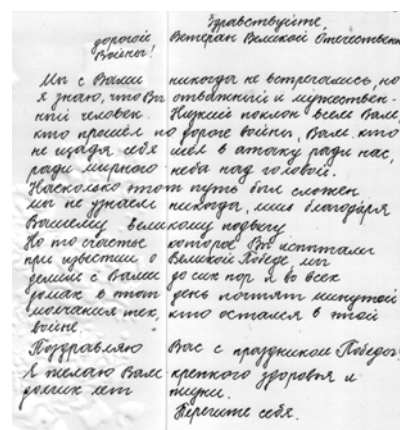 Здравствуйте,
дорогой Ветеран Великой Отечествен
Войны!
Мы с Вами никогда не встречались, но
я знаю, что Вы отважный и мужествен-
ный человек. Низкий поклон всем Вам,
кто прошёл по дороге войны, Вам, кто
не щадя себя шёл в атаку ради нас,
ради мирного неба над головой.
Насколько этот путь был сложен
мы не узнаем никогда, лишь благодаря
Вашему великому подвигу.
Но то счастье которое Вы испытали
при известии о Великой Победе, мы
делим с Вами до сих пор и во всех
домах в этот день почтят минутой
молчания тех, кто остался в той
войне.
Поздравляю Вас с праздником Победы!
Я желаю Вам крепкого здоровья и
долгих лет жизни.
Берегите себя.